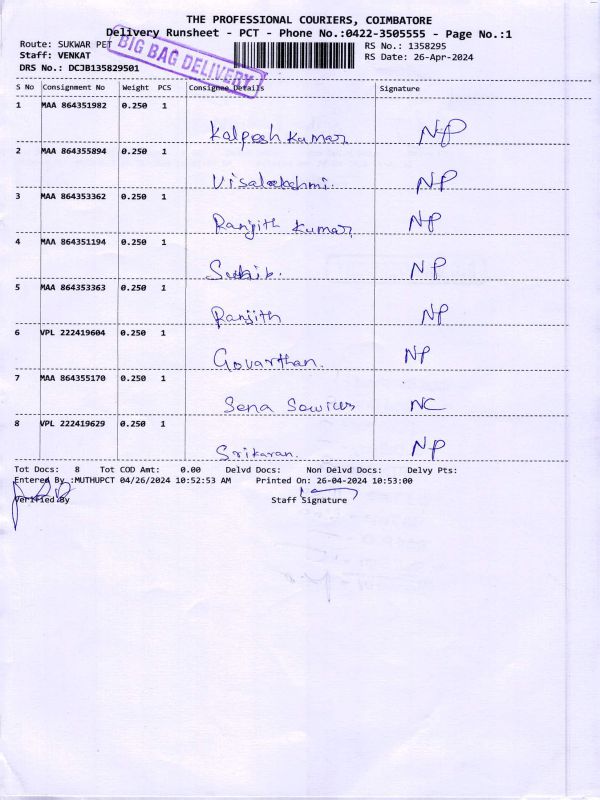 THE PROFESSIONAL COURIERS, COIMBATORE
Delivery Runsheet - PCT - Phone No.:0422-3505555 - Page No.:1
Route: SUKWAR PET RS No.: 1358295
Staff: VENKAT RS Date: 26-Apr-2024
DRS No.: DCJB135829501
BIG BAG DELIVERY
S No Consignment No Weight PCS Consignee Details Signature
1 MAA 864351982 0.250 1
Kalpesh Kumar NP
2 MAA 864355894 0.250 1
Visalakshmi. NP
3 MAA 864353362 0.250 1
Ranjith Kumar NP
4 MAA 864351194 0.250 1
NP
5 MAA 864353363 0.250 1
Ranjith NP
6 VPL 222419604 0.250 1
Govarthan. NP
7 MAA 864355170 0.250 1
Sena Sewices NC
8 VPL 222419629 0.250 1
Srikaran. NP
Tot Docs: 8 Tot COD Amt: 0.00 Delvd Docs: Non Delvd Docs: Delvy Pts:
Entered By :MUTHUPCT 04/26/2024 10:52:53 AM Printed On: 26-04-2024 10:53:00
Verified By Staff Signature